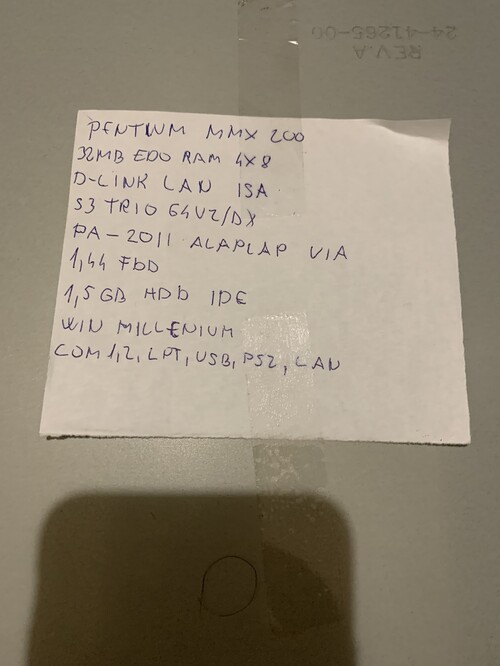 24-41265-00
REV.A
PENTIUM MMX 200
32MB EDO RAM 4X8
D-LINK LAN ISA
S3 TRIO 64V2/DX
PA-2011 ALAPLAP VIA
1,44 FDD
1,5GB HDD IDE
WIN MILLENIUM
COM1,2, LPT, USB, PS2, LAN